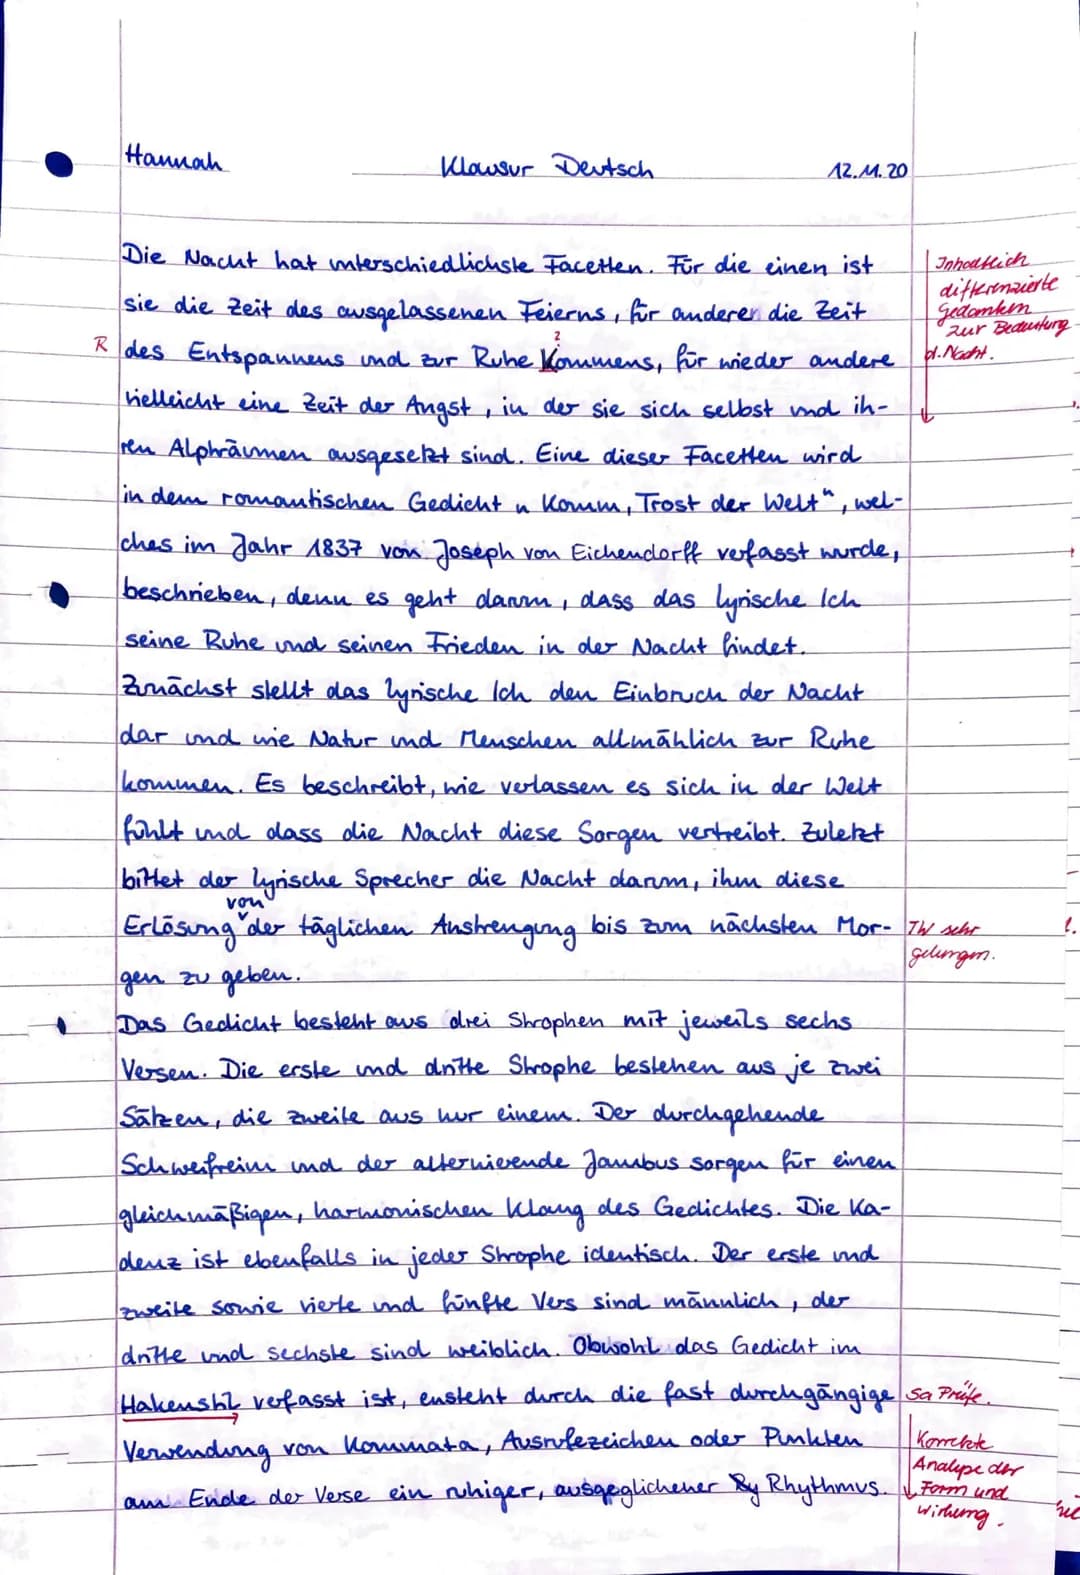 Hannah Klausur Deutsch 12.11.20
Die Nacht hat unterschiedlichste Facetten. Für die einen ist
sie die Zeit des ausgelassenen Feierns, für anderen die Zeit
des Entspannens und zur Ruhe Kommens, für wieder andere
vielleicht eine Zeit der Angst, in der sie sich selbst und ih-
ren Alphträumen ausgesetzt sind. Eine dieser Facetten wird
in dem romantischen Gedicht „Komm, Trost der Welt“, wel-
ches im Jahr 1837 von Joseph von Eichendorff verfasst wurde,
beschrieben, denn es geht darum, dass das lyrische Ich
seine Ruhe und seinen Frieden in der Nacht findet.
Zunächst stellt das lyrische Ich den Einbruch der Nacht
dar und wie Natur und Menschen allmählich zur Ruhe
kommen. Es beschreibt, wie verlassen es sich in der Welt
fühlt und dass die Nacht diese Sorgen vertreibt. Zuletzt
bittet der lyrische Sprecher die Nacht darum, ihm diese
Erlösung von der täglichen Anstrengung bis zum nächsten Mor-
gen zu geben.
Das Gedicht besteht aus drei Strophen mit jeweils sechs
Versen. Die erste und dritte Strophe bestehen aus je zwei
Sätzen, die zweite aus nur einem. Der durchgehende
Schweifreim und der alternierende Jambus sorgen für einen
gleichmäßigen, harmonischen Klang des Gedichtes. Die Ka-
denz ist ebenfalls in jeder Strophe identisch. Der erste und
zweite sowie vierte und fünfte Vers sind männlich, der
dritte und sechste sind weiblich. Obwohl das Gedicht im
Hakenstil verfasst ist, ensteht durch die fast durchgängige
Verwendung von Kommata, Ausrufezeichen oder Punkten
am Ende der Verse ein ruhiger, ausgeglichener Ry Rhythmus.
Inhaltlich
differenzierte
Gedanken
zur Bedeutung
d. Nacht.
R
?
TW sehr
gelungen.
Sa Prüfe.
Korrekte
Analyse der
Form und
Wirkung.